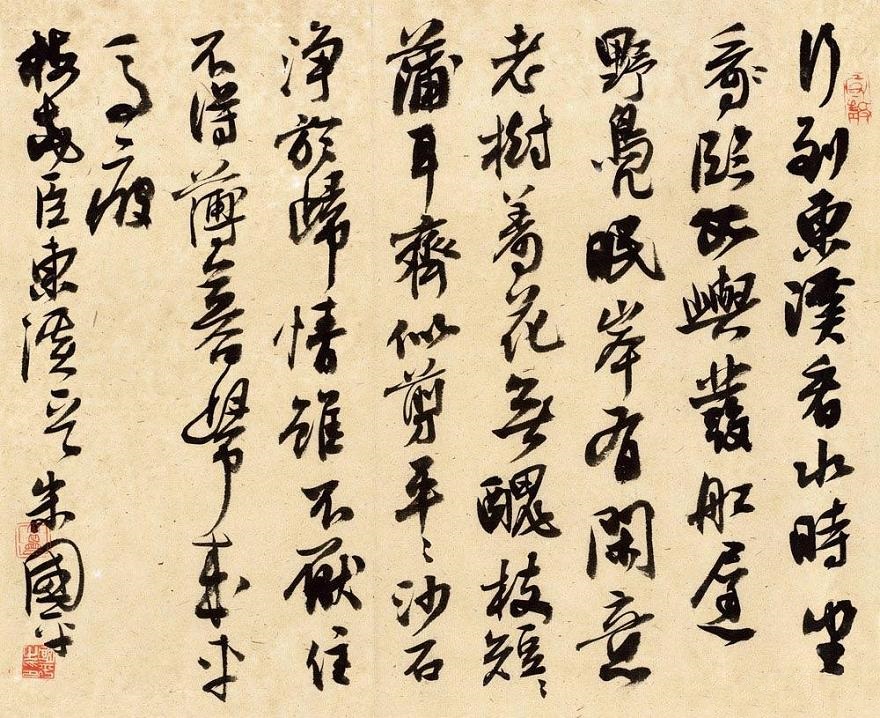 行到東溪看水時坐
臨孤嶼發船遲
野鳧眠岸有閑意
老樹著花無醜枝短〻
蒲茸齊似剪平〻沙石
淨於篩情雖不厭住
不得薄暮歸來車
馬疲
梅堯臣東溪 朱國平